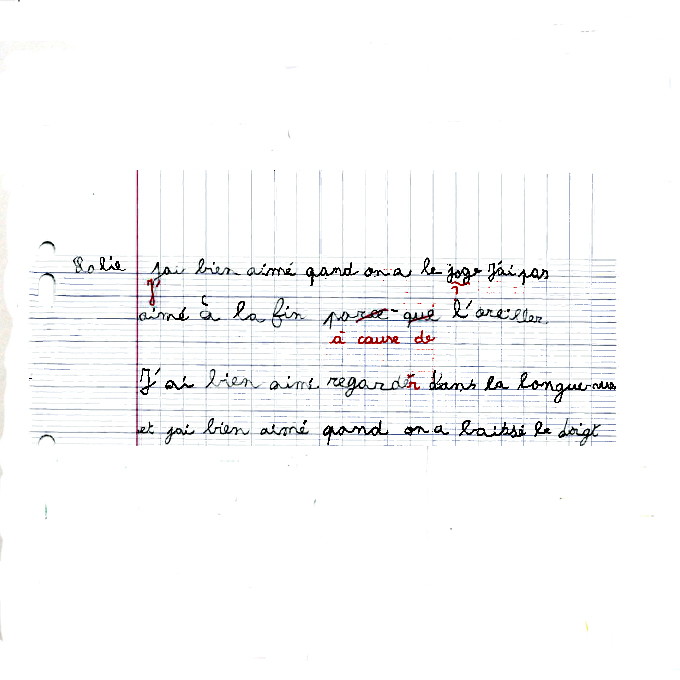 jai bien aimé qand on a le joge J'ai pas
J'
aimé à la fin parce-que l'oreiller
à cause de
J'ai bien aimé regarder dans la longue-vue
et jai bien aimé qand on a laissé le doigt